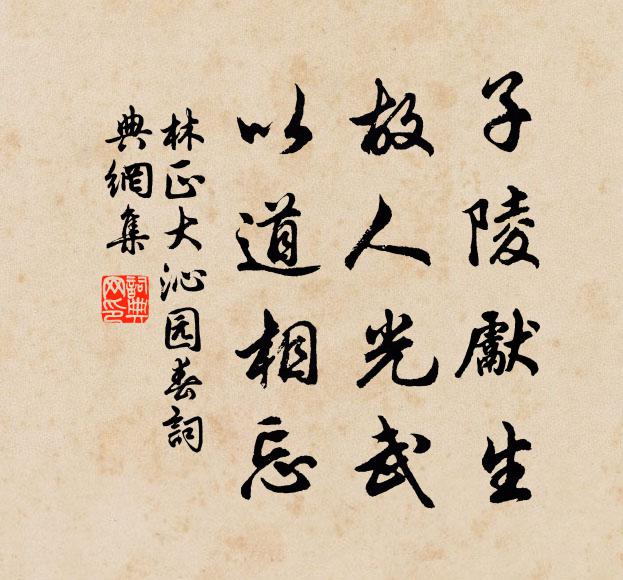 子陵獻生
故人光武
以道相忘
林正大沁园春詞
典網集
詞典
网印